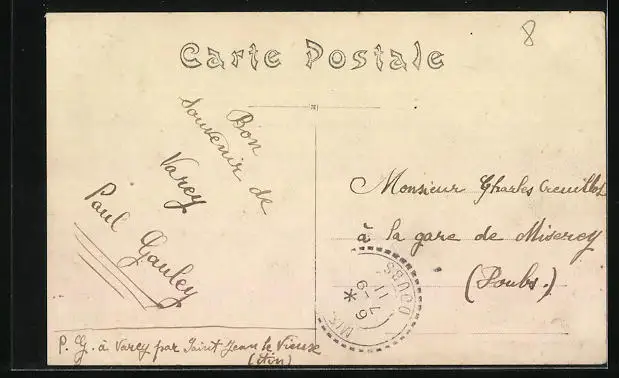 8
Carte Postale
Bon
Souvenir de
Varey
Paul Gauley
P. G. à Varey par Saint Jean le Vieux
(Ain)
Monsieur Charles
à la gare de Miserey
(Doubs.)
DOUBS